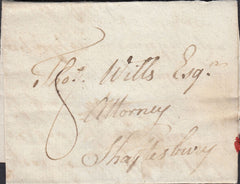 Tho.s Wills Esq.r
Attorney
Shaftesbury